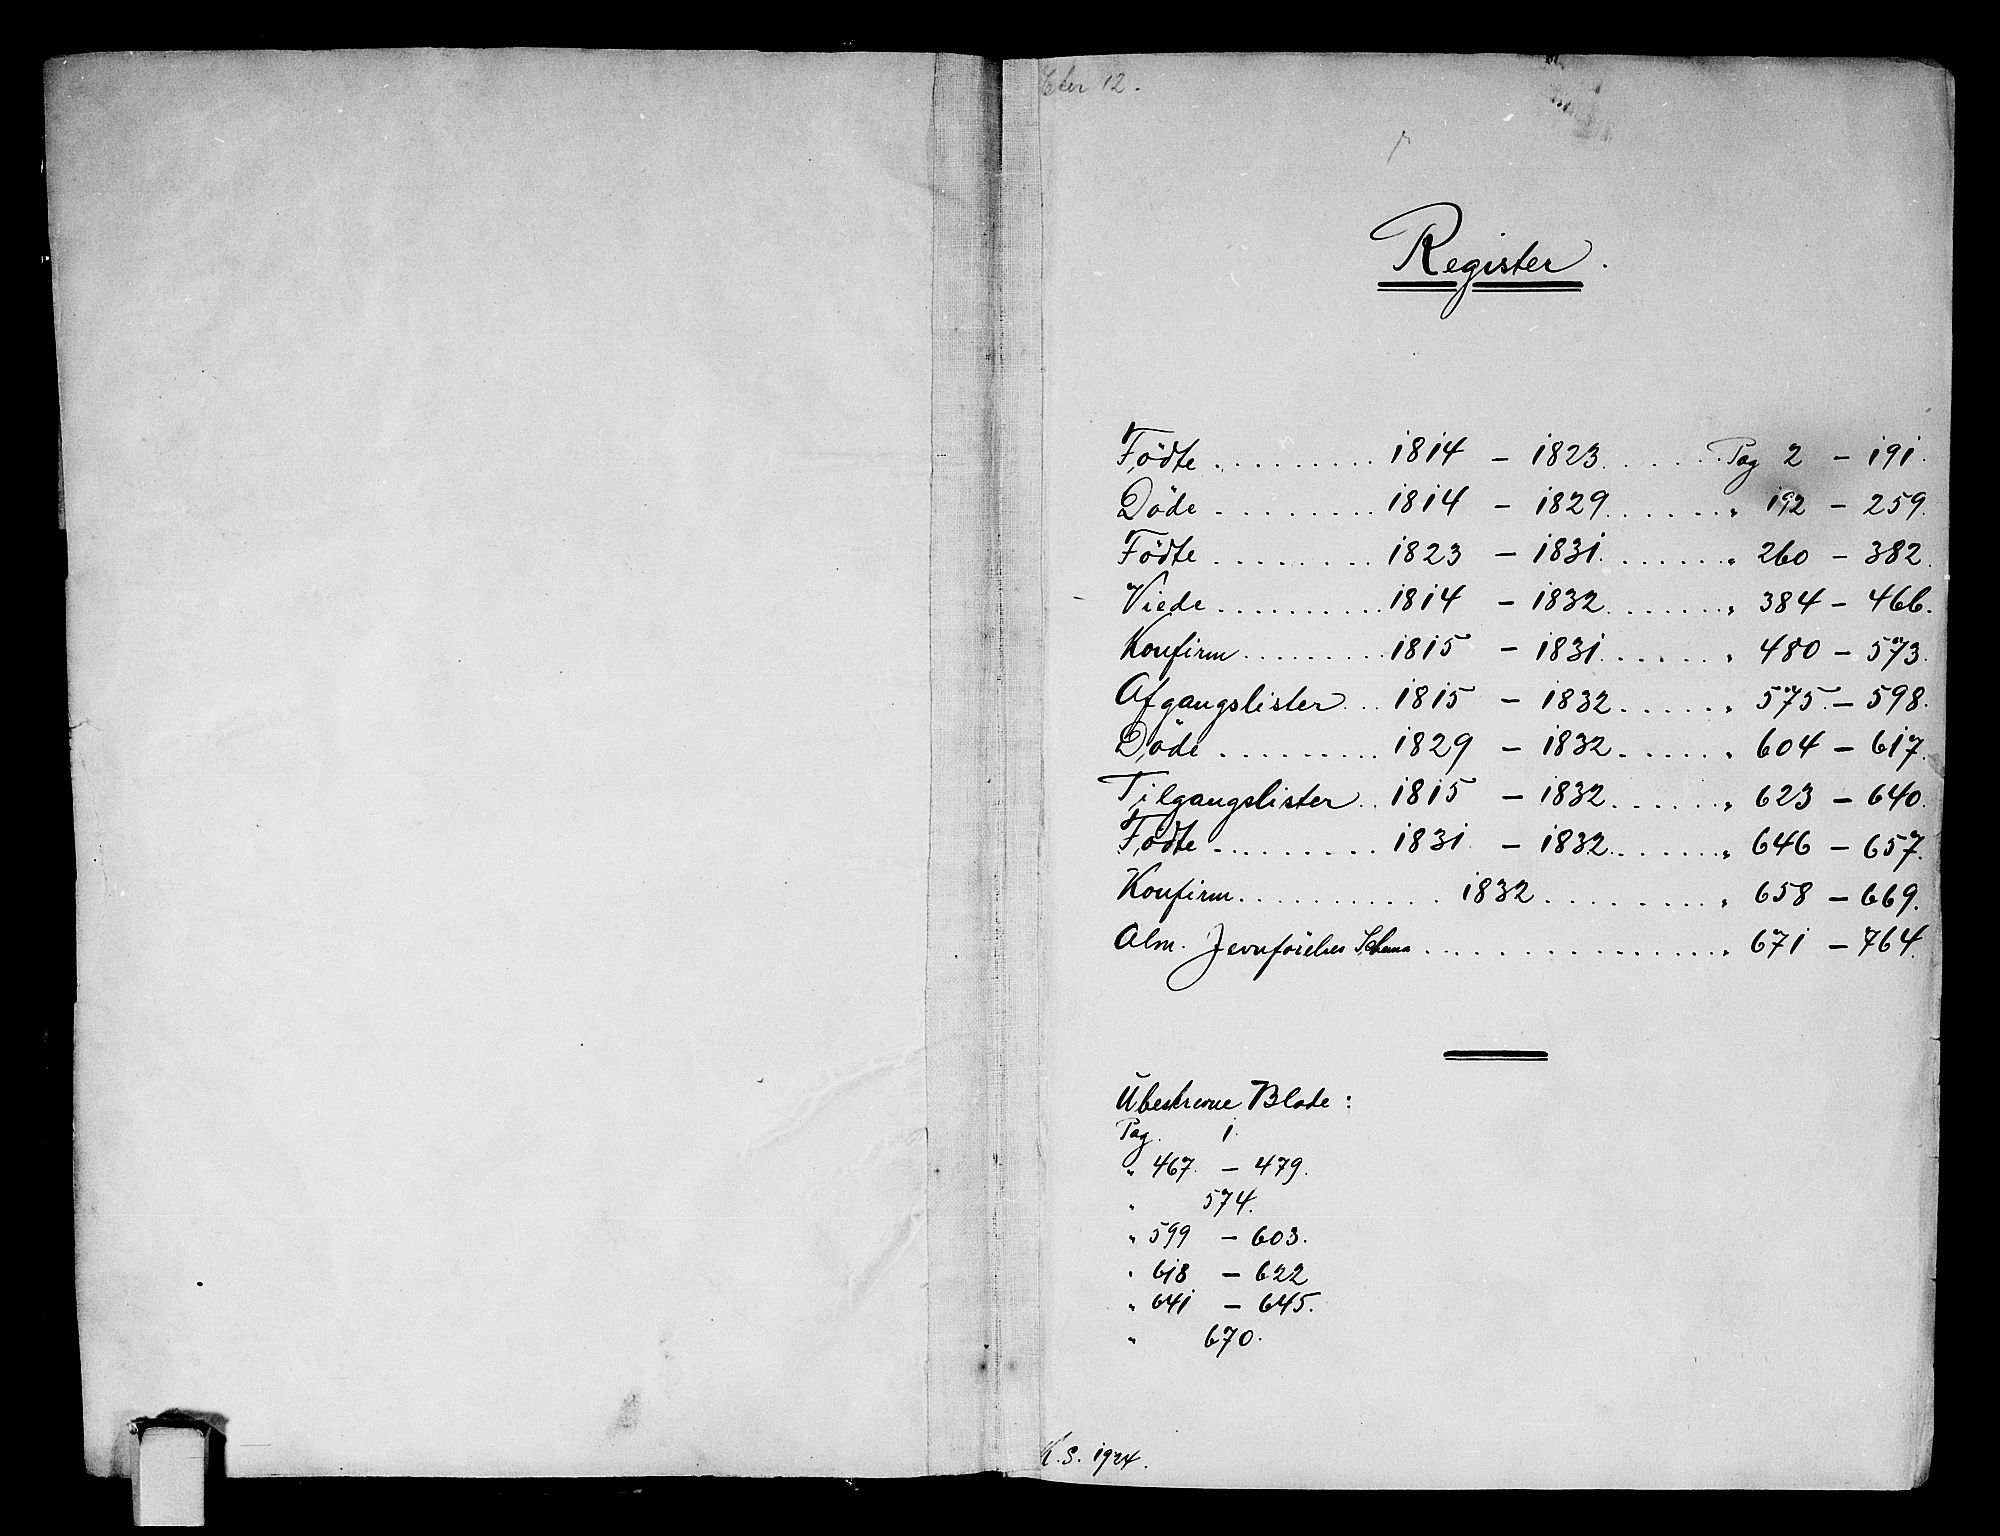 Eker 12.
Register.
Födte ......... 1814 – 1823 ...... Pag 2 – 191.
Döde ......... 1814 – 1829 ...... " 192 – 259.
Födte ......... 1823 – 1831 ...... " 260 – 382.
Viede ......... 1814 – 1832 ...... " 384 – 466.
Konfirm ......... 1815 – 1831 ...... " 480 – 573.
Afgangslister ... 1815 – 1832 ...... " 575 – 598.
Döde ......... 1829 – 1832 ...... " 604 – 617.
Tilgangslister .. 1815 – 1832 ...... " 623 – 640.
Födte ......... 1831 – 1832 ...... " 646 – 657.
Konfirm ............ 1832 .......... " 658 – 669.
Alm. Jevnförelses Schema ................ " 671 – 764.
Ubeskrevne Blade :
Pag. 1.
" 467. – 479.
" 574.
" 599 – 603.
" 618 – 622
" 641 – 645.
" 670.
K.S. 1924.